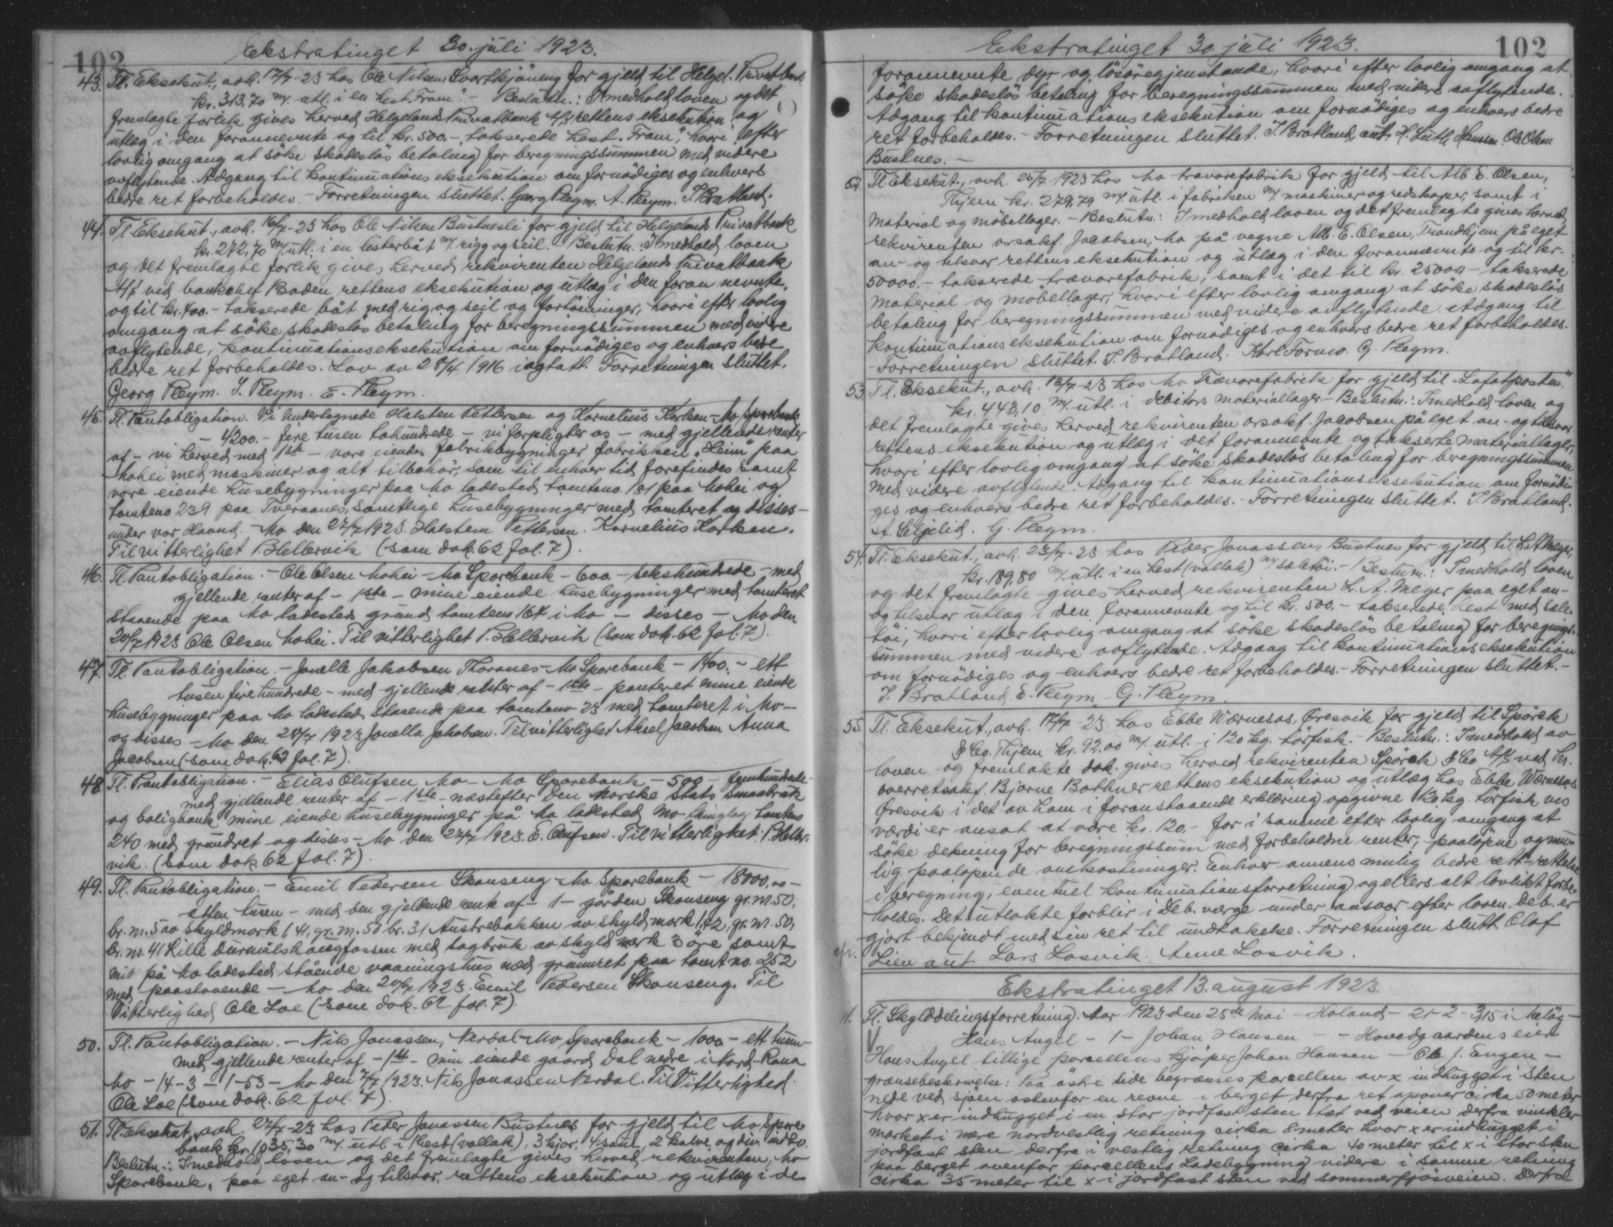 102
Ekstratinget 30. juli 1923.
43. Tl. Eksekut., avh. 12/7-23 hos Ole Nilsen Svartkjönmo for gjeld til Helgel. Privatbank
kr. 313,70 m. utl. i en hest "Fram". Beslutn.: I medhold loven og det
fremlagte forlik gives herved Helgelands Privatbank A/S rettens eksekution og
utlæg i den forannevnte og til kr. 500,- takserede hest "Fram", hvori efter
lovlig omgang at söke skadeslös betaling for beregningssummen med videre
avflytende. Adgang til kontinuations eksekution om fornödiges og enhvers
bedre ret forbeholdes. Forretningen sluttet. Georg Pleym. A. Pleym. J. Bratland.
44. Tl. Eksekut., avh. 16/7-23 hos Ole Nilsen Bustnesli for gjeld til Helgelands Privatbank
kr. 272,70 m. utl. i en listerbåt m. rigg og seil. Beslutn.: I medhold loven
og det fremlagte forlik gives herved rekvirenten Helgelands Privatbank
A/S ved bankchef Baden rettens eksekution og utlæg i den foran nevnte,
og til kr. 400.- takserede båt med rig og seil og fortöininger, hvori efter lovlig
omgang at söke skadeslös betaling for beregningssummen med videre
avflytende, kontinuationseksekution om fornödiges og enhvers bedre
bedre ret forbeholdes. Lov av 28/4 1916 iagtatt. Forretningen sluttet.
Georg Pleym. J. Pleym. E. Pleym.
45. Tl. Pantobligation. Vi undertegnede Halsten Pettersen og Kornelius Karlsen - Mo Sparebank
- 4200.- fire tusen tohundrede - vi forpligter os - med gjellende renter
af - vi herved med 1ste - vore eiende fabrikbygninger fabrikken "Heim" paa
Mohei med maskiner og alt tilbehör, som til enhver tid forefindes samt
vore eiende husebygninger paa Mo ladested tomteno 181 paa Mohei og
tomteno 239 paa Tveraanes, samtlige husebygninger med tomteret og disses -
under vor Haand. Mo den 27/7 1923. Halsten Pettersen. Kornelius Karlsen.
Til vitterlighet P. Hellervik (som dok. 62 fol. 7).
46. Tl. Pantobligation. - Ole Olsen Mohei - Mo Sparebank - 600 - sekshundrede - med
gjellende renter af - 1ste - mine eiende husebygninger med tomteret
staaende paa Mo ladesteds grund tomteno 164 i Mo - disses - Mo den
20/7 1923 Ole Olsen Mohei. Til vitterlighet P. Hellervik (som dok. 62 fol. 7).
47. Tl. Pantobligation. - Jonella Jakobsen Thornes - Mo Sparebank - 1400.- ett
tusen firehundrede - med gjellende renter af - 1ste - panteret mine eiende
husebygninger paa Mo ladested staaende paa tomteno 23 med tomteret i Mo -
og disses - Mo den 20/7 1923 Jonella Jakobsen. Til vitterlighet Aksel Jacobsen Anna
Jacobsen (som dok. 62 fol. 7).
48. Tl. Pantobligation. - Elias Olufsen Mo - Mo Sparebank - 500 - femhundrede
med gjellende renter af - 1ste - næstefter Den Norske Stats Smaabruk
og boligbank mine eiende husebygninger på Mo ladested Mo tinglag tomteno
240 med grundret og disses - Mo den 27/7 1923. E. Olufsen. Til vitterlighet P. Heller-
vik. (Som dok. 62 fol. 7).
49. Tl. Pantobligation. - Emil Pedersen Skonseng - Mo Sparebank - 18000,00 -
atten tusen - med den gjeldende rente af - 1 - gården Skonseng gr. nr. 50,
br. nr. 5 av skyldmark 1,41, gr. nr. 50 br. 31 Austrebakken av skyldmark 1,42, gr. nr. 50,
br. nr. 41 Kille Durmålshaugfossen med sagbruk av skyldmark 3 öre samt
mit på Mo ladested stående vaaningshus med grunnret paa tomt no. 252
med paastaaende - Mo den 20/7 1923. Emil Pedersen Skonseng. Til
Vitterlighed Ole Loe (som dok. 62 fol. 7).
50. Tl. Pantobligation. - Nils Jonassen, Nerdal - Mo Sparebank - 1000 - ett tusen -
med gjellende renter af - 1ste - min eiende gaard Dal nedre i Nord-Rana
Mo - 14 - 3 - 1-53 - Mo den 7/7 1923. Nils Jonassen Nerdal. Til Vitterlighed
Ole Loe (som dok. 62 fol. 7).
51. Tl. Eksekut., avh. 27/7-23 hos Peder Jonassen Bustnes for gjeld til Mo Spare
bank kr. 1035,30 m. utl. i 1 hest (vallak), 3 kjör, 4 sau, 2 kalve og div. indbo.
Beslutn.: I medhold loven og det fremlagte gives herved rekvirenten, Mo
Sparebank, paa eget an- og tilsvar, rettens eksekution og utlæg i de
102
Ekstratinget 30. juli 1923.
forannevnte dyr og lösöregjenstande, hvori efter lovlig omgang at
söke skadeslös betaling for beregningssummen med videre avflytende.
Adgang til kontinuations eksekution om fornödiges og enhvers bedre
ret forbeholdes. - Forretningen sluttet. J. Bratland, aut. H. Luth Hanssen Ole Olsen
Bustnes. -
52. Tl. Eksekut., avh. 26/7 1923 hos Mo trävarefabrik for gjeld til Alb. E. Olsen,
Thjem kr. 279,79 m. utl. i fabriken m. maskiner og redskaper, samt i
material og möbellager. - Beslutn.: I medhold loven og det fremlagte gives herved
rekvirenten o.r.sakf. Jacobsen, Mo på vegne Alb. E. Olsen, Trondhjem på eget
an- og tilsvar rettens eksekution og utlæg i den forannevnte og til kr.
50000.- takserede trævarefabrik, samt i det til kr. 25000.- takserede
material og möbellager, hvori efter lovlig omgang at söke skadeslös
betaling for beregningssummen med videre avflytende. Adgang til
kontinuationseksekution om fornödiges og enhvers bedre ret forbeholdes.
Forretningen sluttet. J. Bratland. Karl Formo. G. Pleym.
53. Tl. Eksekut., avh. 12/7-23 hos Mo Trævarefabrik for gjeld til "Lofotposten"
kr. 442,10 m. utl. i debitors materiallager. - Beslutn.: I medhold loven og
det fremlagte gives herved rekvirenten o.r.sakf. Jacobsen på eget an- og tilsvar
rettens eksekution og utlæg i det forannevnte og takserte materiallager,
hvori efter lovlig omgang at söke skadeslös betaling for beregningssummen
med videre avflytende. Adgang til kontinuationseksekution om fornödi-
ges og enhvers bedre ret forbeholdes. - Forretningen sluttet. J. Bratland.
A. Selfjelid. G. Pleym.
54. Tl. Eksekut., avh. 23/7-23 hos Peder Jonassen, Bustnes for gjeld til L.A. Meyer,
kr. 189,80 m. utl. i en hest (vallak) m. seletöi. - Beslutn.: I medhold loven
og det fremlagte gives herved rekvirenten L. A. Meyer paa eget an-
og tilsvar utlæg i den forannevnte og til kr. 500.- takserede hest med sele-
töi, hvori efter lovlig omgang at söke skadeslös betaling for beregnings-
summen med videre avflytende. Adgang til kontinuationseksekution
om fornödiges og enhvers bedre ret forbeholdes. - Forretningen sluttet. -
J. Bratland. E. Pleym. G. Pleym.
55. Tl. Eksekut., avh. 17/7-23 hos Ebbe Wærnesos. Øresvik for gjeld til Spörck
& Co. Thjem kr. 92.00 m. utl. i 120 kg. törfisk. - Beslutn.: I medhold av
loven og fremlakte dok. gives herved rekvirenten Spörck & Co A/S ved hr.
overretssakf. Bjarne Bothner rettens eksekution og utlæg hos Ebbe Wærnesos
Øresvik i det av ham i foranstaaende erklæring opgivne 120 kg. törfisk, ves
værdi er ansat at være kr. 120.- for i samme efter lovlig omgang at
söke dekning for beregningssum med forbeholdne renter, paalöpne og mu-
lig paalöpende omkostninger. Enhver annens mulig bedre rett - rettelse
i beregning, eventuel kontinuationsforretning og ellers alt lovlikt forbe-
holdes. Det utlakte forblir i deb. værge under ansvar efter loven. Deb. er
gjort bekjendt med sin ret til undtakelse. Forretningen slutt. Olaf
Lien aut. Lars Losvik. Arne Losvik.
Ekstratinget 13. august 1923.
1. Tl. Skylddelingsforretning. Aar 1923 den 25de Mai - Holand - 21 - 2 - 3,15 i Meløy -
Hans Angel - 1 - Johan Hansen - - Hovedgaardens eier
Hans Angel tillige parcellens kjøper Johan Hansen - Ole J. Engen -
grænsebeskrivelse: Paa östre side begrænses parcellen av x indhugget i sten
nede ved sjöen østenfor en revne i berget derfra ret opover cirka 50 meter
hvor x er indhugget i en stor jordfast sten tæt ved veien derfra vinkler
merket i mere nordvestlig retning cirka 8 meter hvor x er indhugget i
jordfast sten derfra i vestlig retning cirka 40 meter til x i stor sten
paa berget ovenfor parcellens Ladebygning videre i samme retning
cirka 35 meter til x i jordfast sten ved sommerfjøsveien. Derfra